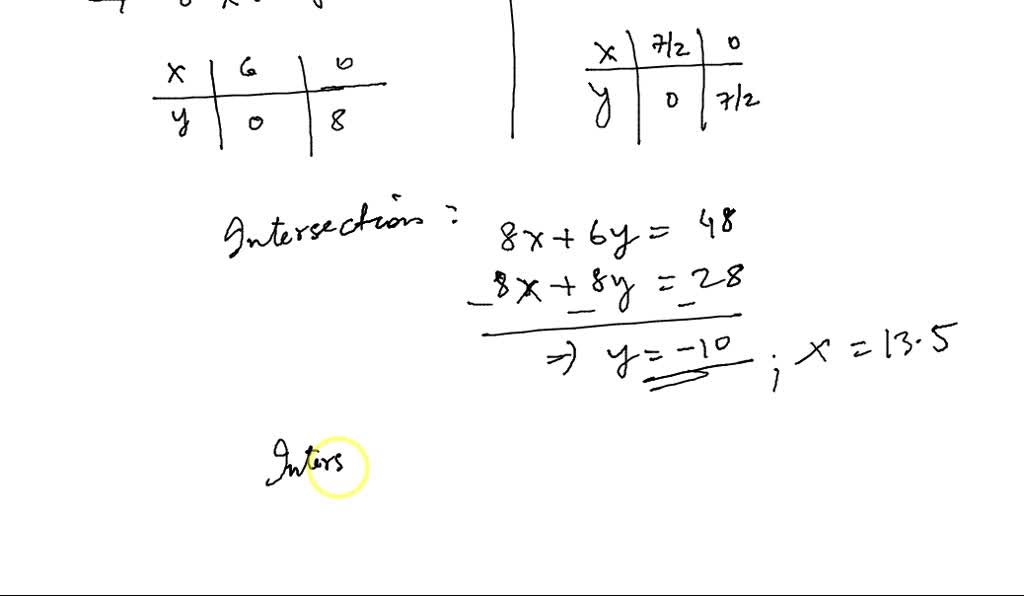 x | 6 | 0
y | 0 | 8
x | 7/2 | 0
y | 0 | 7/2
Intersection :
8x + 6y = 48
_ 8x + 8y = 28
_ _
⇒ y = -10 ; x = 13.5
Inters